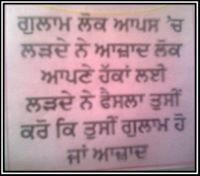 ਗੁਲਾਮ ਲੋਕ ਆਪਸ 'ਚ
ਲੜਦੇ ਨੇ ਆਜ਼ਾਦ ਲੋਕ
ਆਪਣੇ ਹੱਕਾਂ ਲਈ
ਲੜਦੇ ਨੇ ਫੈਸਲਾ ਤੁਸੀਂ
ਕਰੋ ਕਿ ਤੁਸੀਂ ਗੁਲਾਮ ਹੋ
ਜਾਂ ਆਜ਼ਾਦ